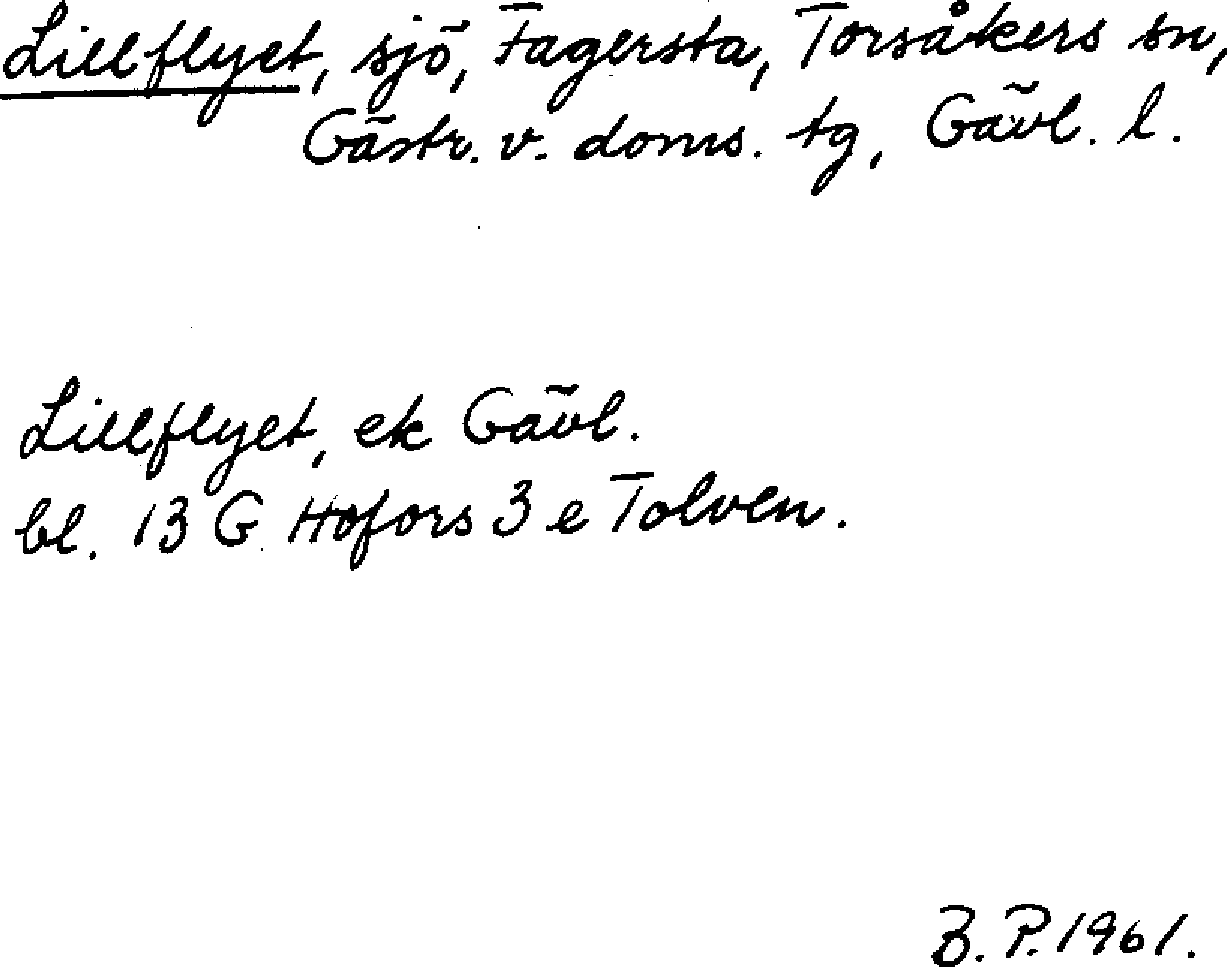 Lillflyet, sjö, Fagersta, Torsåkers sn,
Gästr. v. doms. tg, Gävl. l.
Lillflyet, ek Gävl.
bl. 13 G Hofors 3 e Tolven.
B. P. 1961.